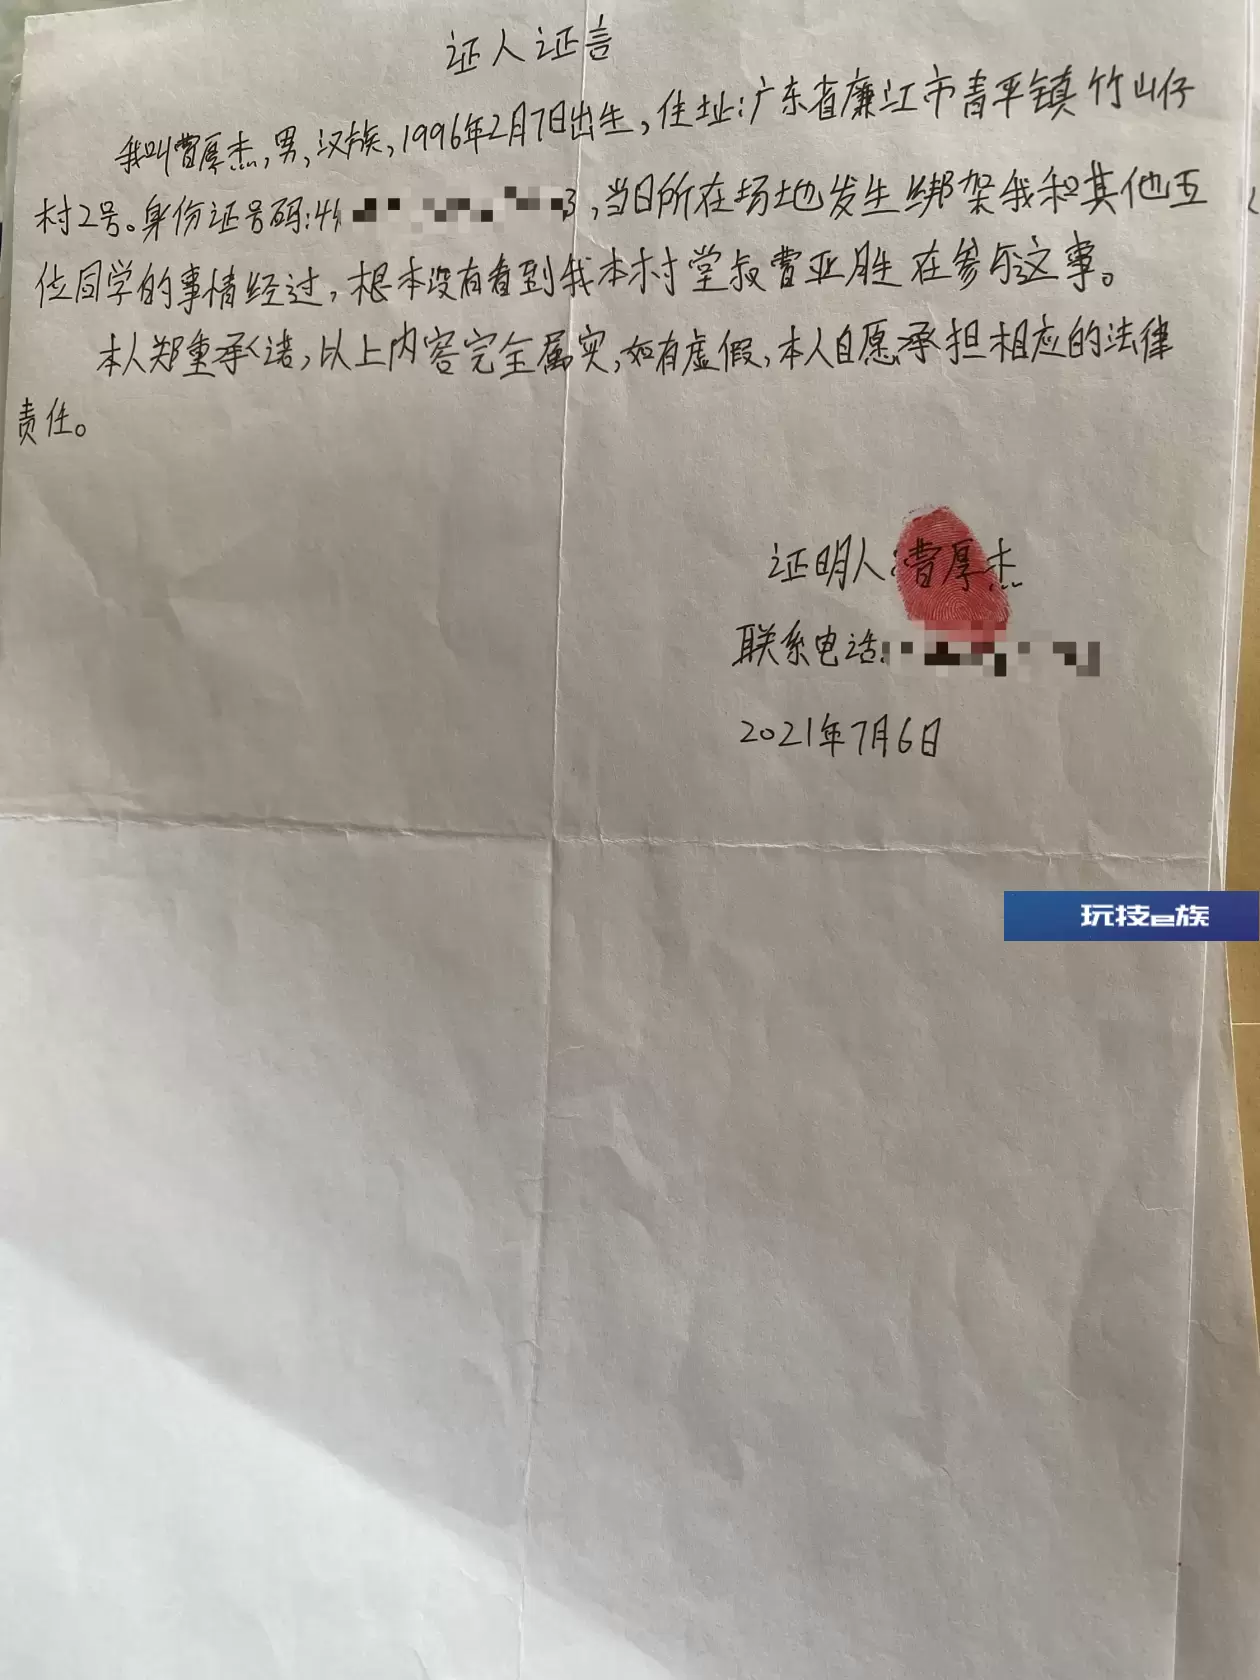 证人证言
我叫曹厚杰,男,汉族,1996年2月7日出生,住址:广东省廉江市青平镇竹山仔
村2号。身份证号码:44 3,当日所在场地发生绑架我和其他五
位同学的事情经过,根本没有看到我本村堂叔曹亚胜在参与这事。
本人郑重承诺,以上内容完全属实,如有虚假,本人自愿承担相应的法律
责任。
证明人:曹厚杰
联系电话:
2021年7月6日
玩技e族